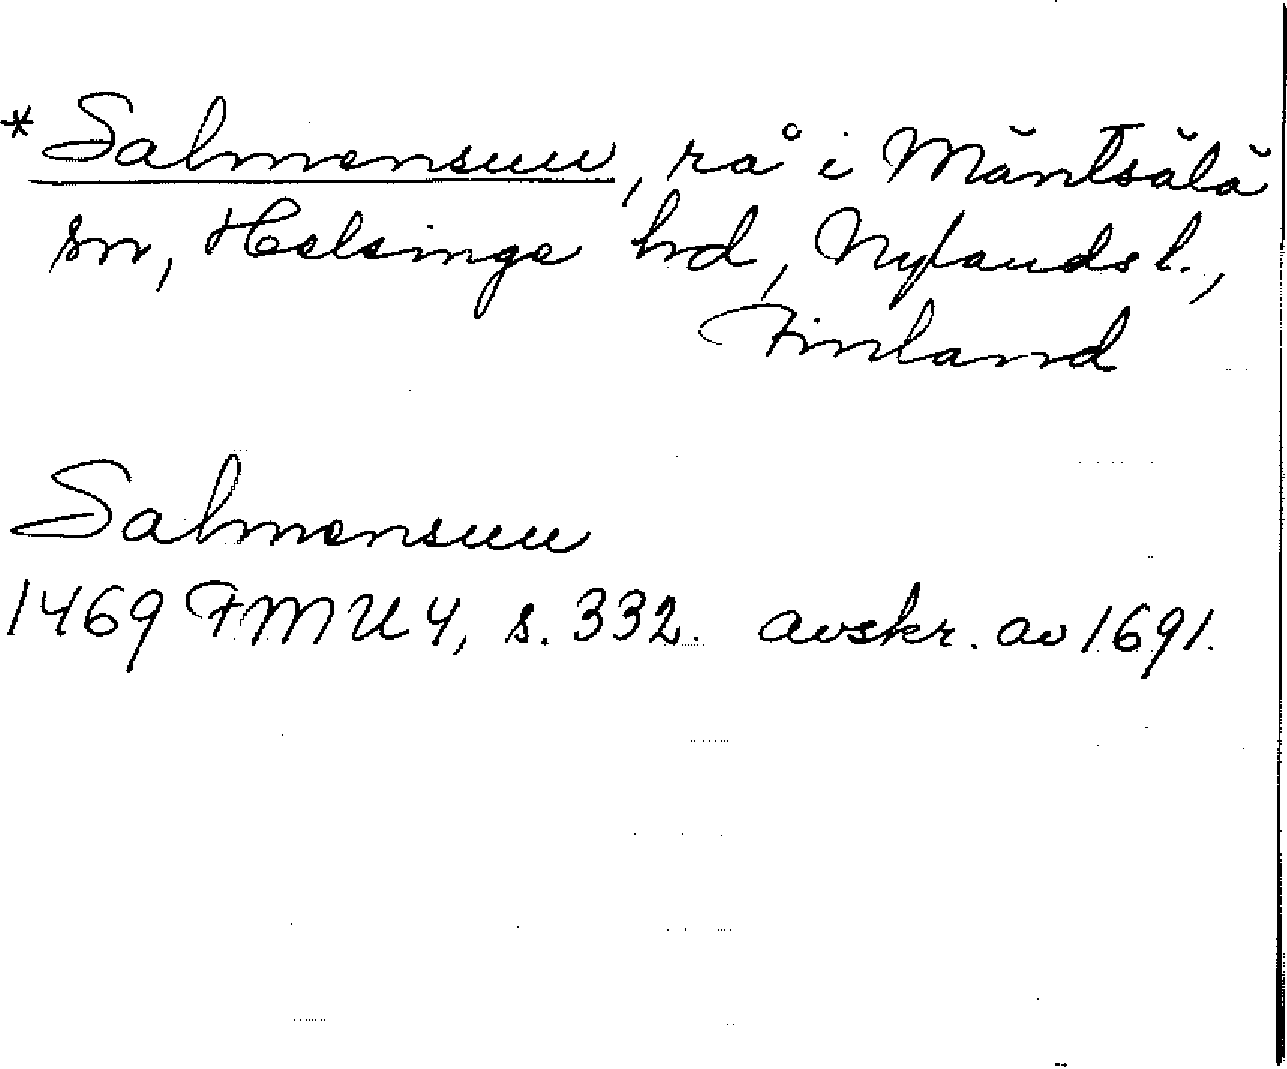 *Salmensuu, rå i Mäntsälä
sn, Helsinge hd, Nylands l.,
Finland
Salmensuu
1469 FMU 4, s. 332. avskr. av 1691.